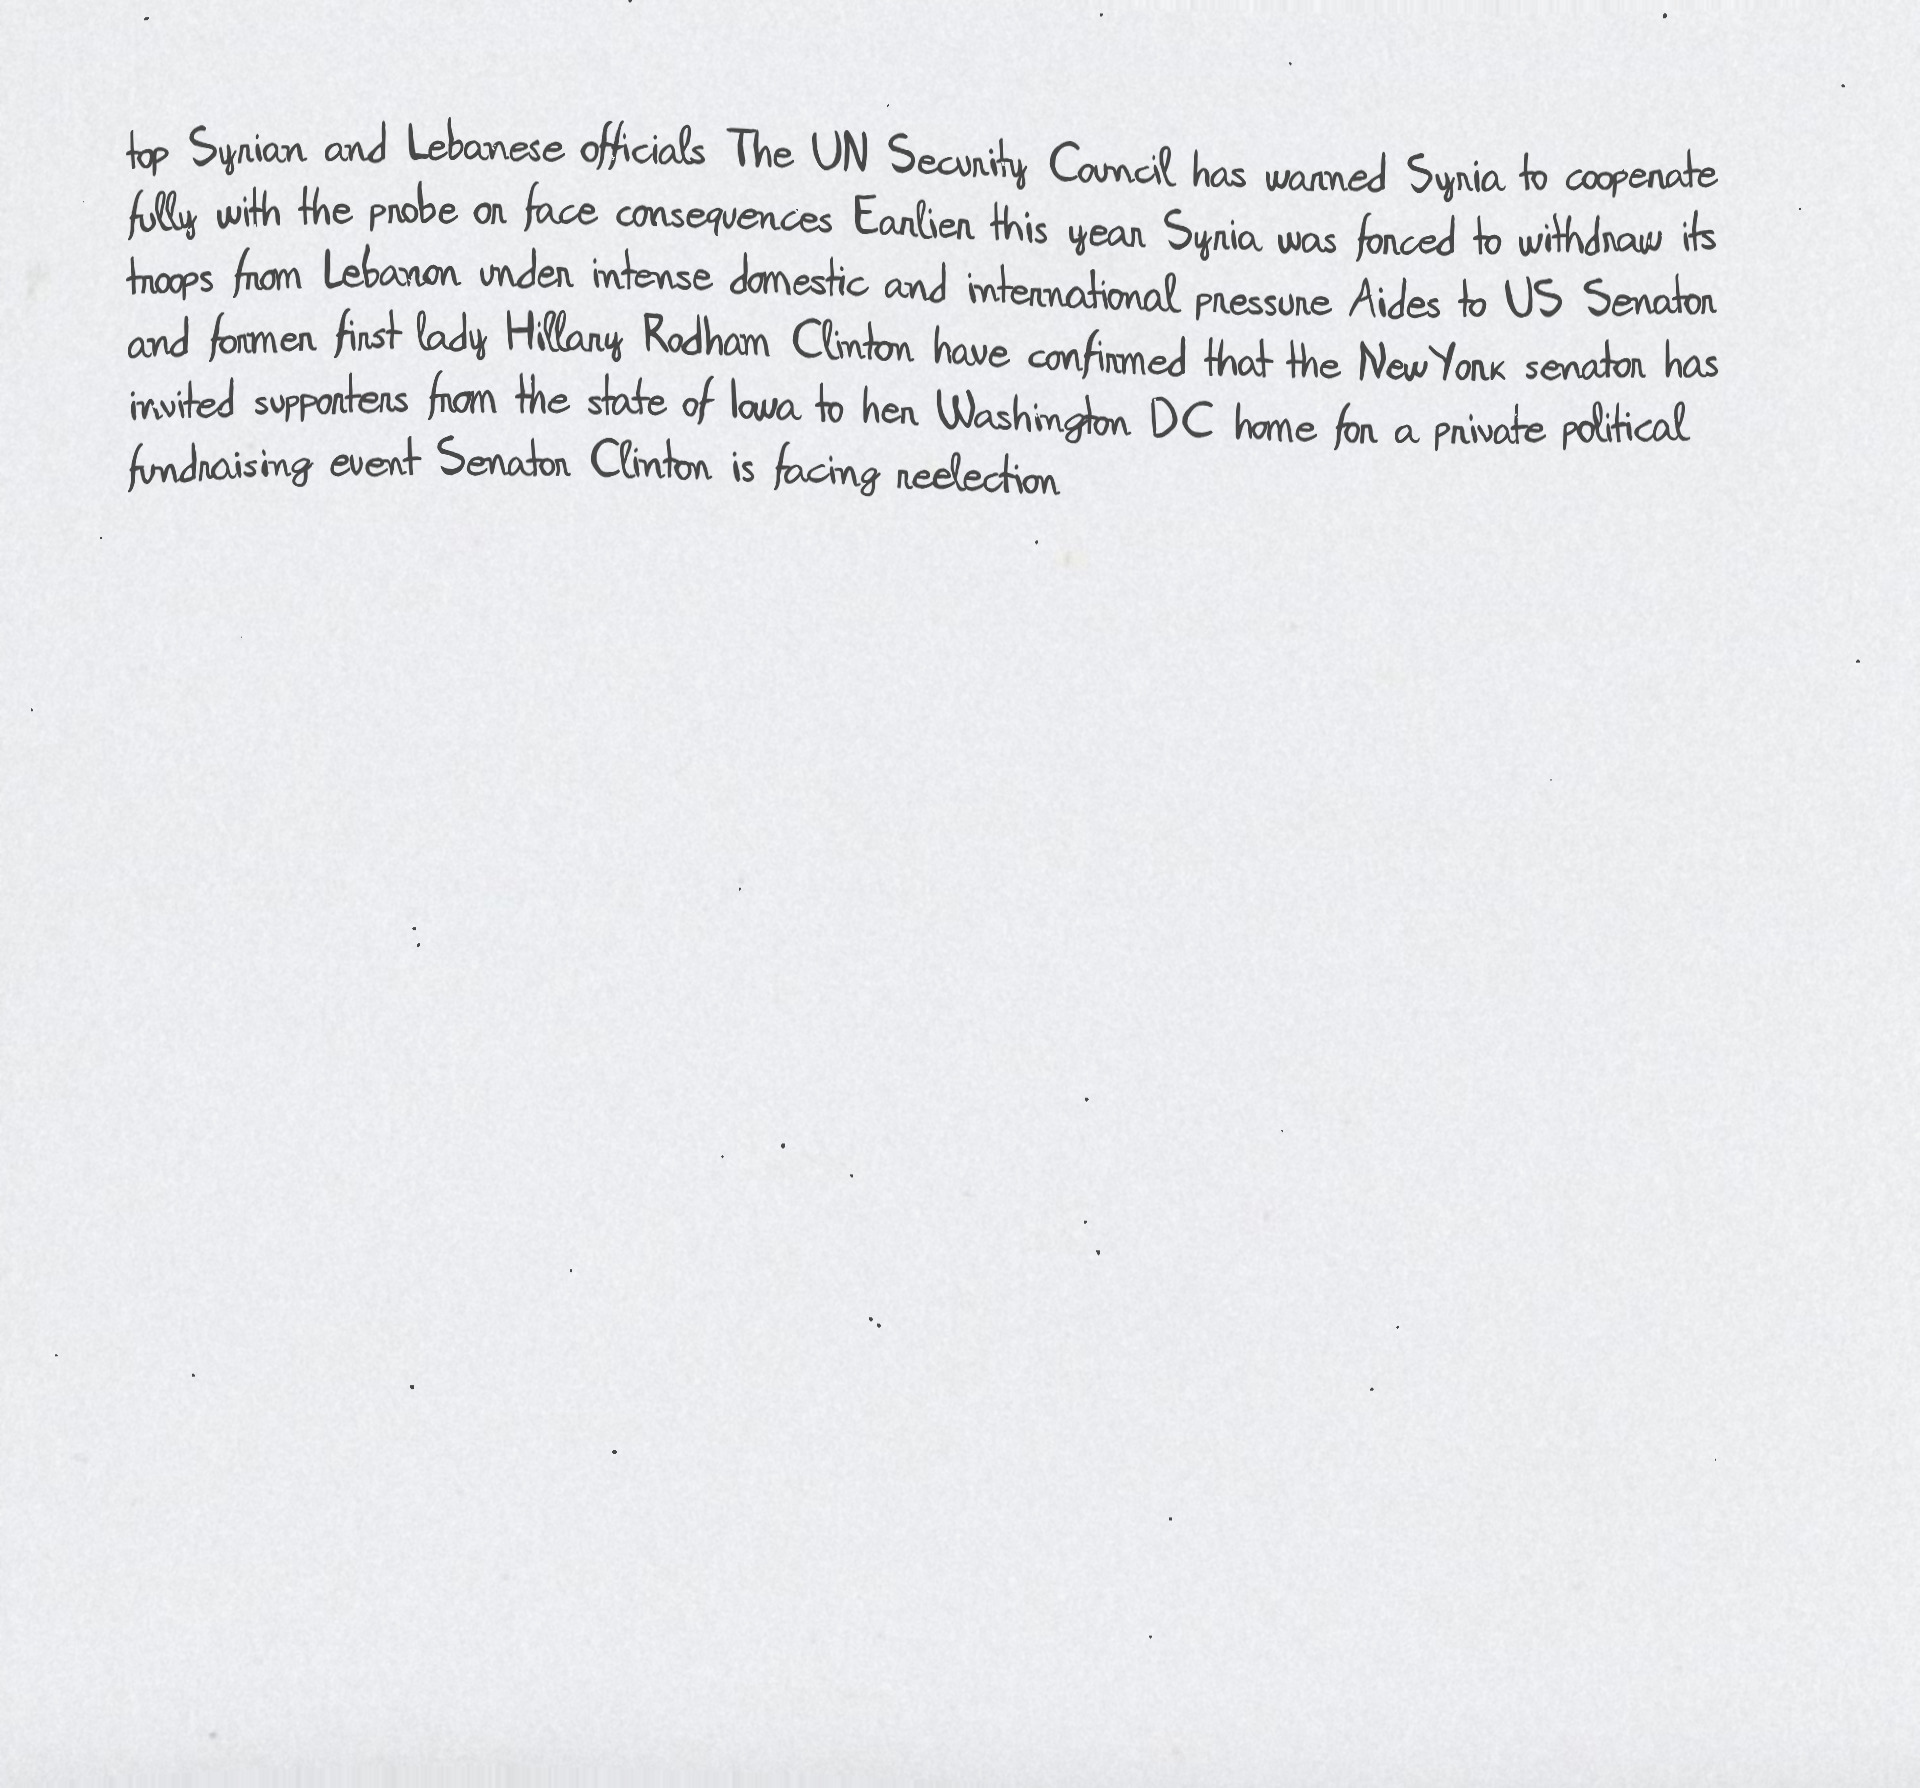 top Syrian and Lebanese officials The UN Security Council has warned Syria to cooperate
fully with the probe or face consequences Earlier this year Syria was forced to withdraw its
troops from Lebanon under intense domestic and international pressure Aides to US Senator
and former first lady Hillary Rodham Clinton have confirmed that the NewYork senator has
invited supporters from the state of Iowa to her Washington DC home for a private political
fundraising event Senator Clinton is facing reelection